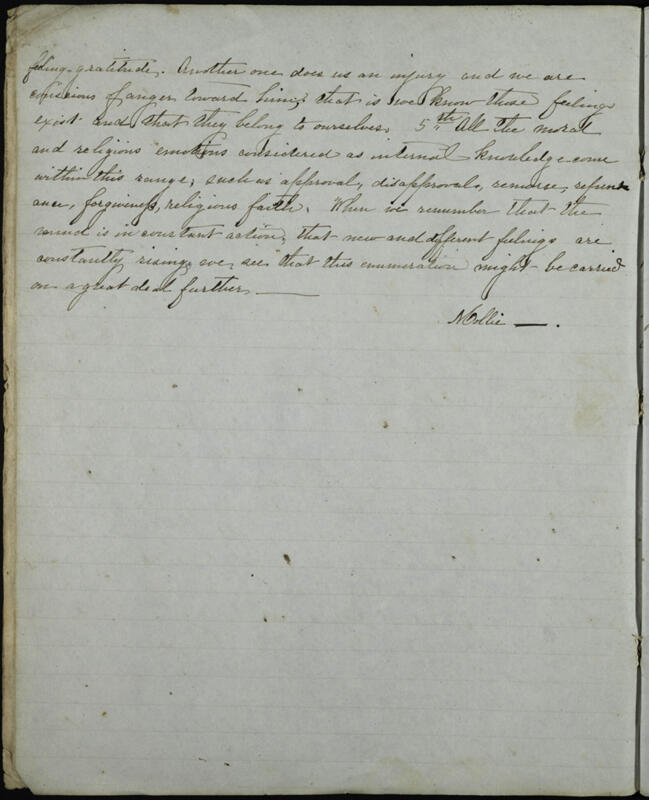 feeling gratitude. Another one does us an injury and we are
conscious of anger toward him; that is we know those feelings
exist and that they belong to ourselves. 5th All the moral
and religious emotions considered as internal knowledge come
within this range; such as approval, disapproval, remorse, repent-
ance, forgiveness, religious faith. When we remember that the
mind is in constant action, that new and different feelings are
constantly rising, we see that this enumeration might be carried
on a great deal further —
Mollie —.